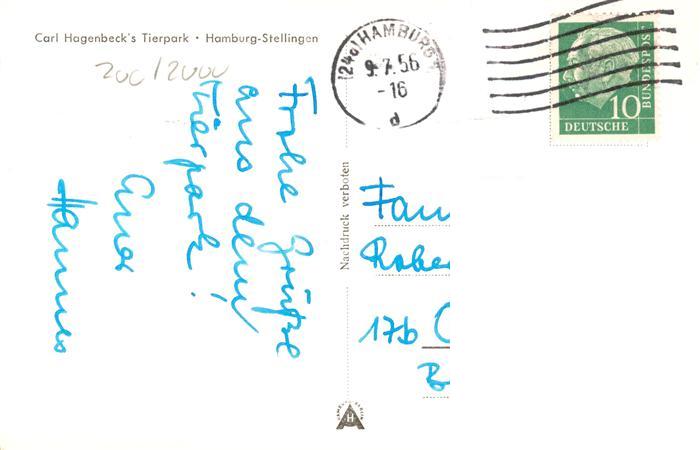 Carl Hagenbeck's Tierpark · Hamburg-Stellingen
200/2000
Frohe Grüße
aus dem
Tierpark!
Euer
Hannes
Nachdruck verboten
(24a) HAMBURG
9.7.56
-16
d
10
DEUTSCHE
BUNDESPOST
Fam
Robe
17b
H